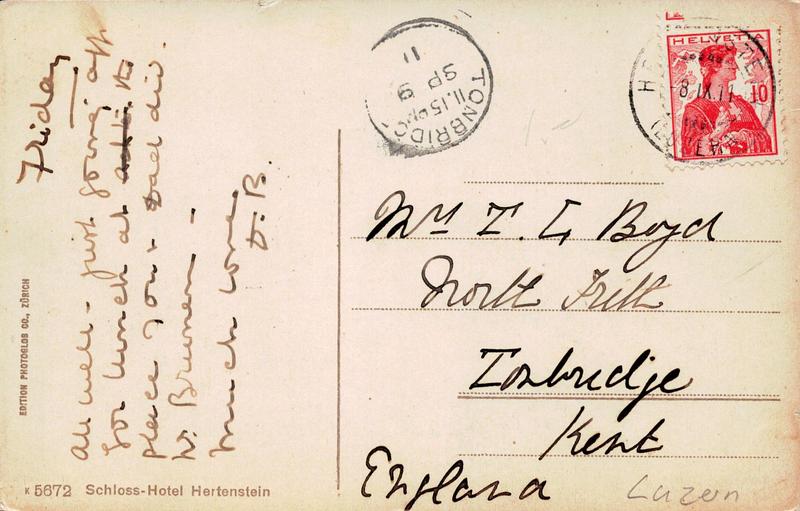 Friday
All well - just going off
for lunch at the
place You & Dad did.
W. Brunnen -
much love
D.B.
EDITION PHOTOGLOB CO., ZÜRICH
K 5672 Schloss-Hotel Hertenstein
TONBRIDGE
11.15 PM
SP 9
11
HELVETIA
10
8.IX.11
Mrs T. L. Boyd
North Frith
Tonbridge
Kent
England
Luzern